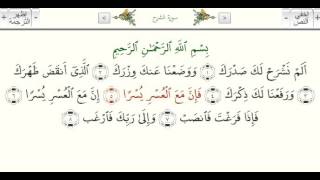 سورة الشرح
النص
الترجمة
بِسْمِ ٱللَّهِ ٱلرَّحْمَٰنِ ٱلرَّحِيمِ
أَلَمْ نَشْرَحْ لَكَ صَدْرَكَ ١ وَوَضَعْنَا عَنكَ وِزْرَكَ ٢ ٱلَّذِىٓ أَنقَضَ ظَهْرَكَ
٣ وَرَفَعْنَا لَكَ ذِكْرَكَ ٤ فَإِنَّ مَعَ ٱلْعُسْرِ يُسْرًا ٥ إِنَّ مَعَ ٱلْعُسْرِ يُسْرًا ٦
فَإِذَا فَرَغْتَ فَٱنصَبْ ٧ وَإِلَىٰ رَبِّكَ فَٱرْغَب ٨